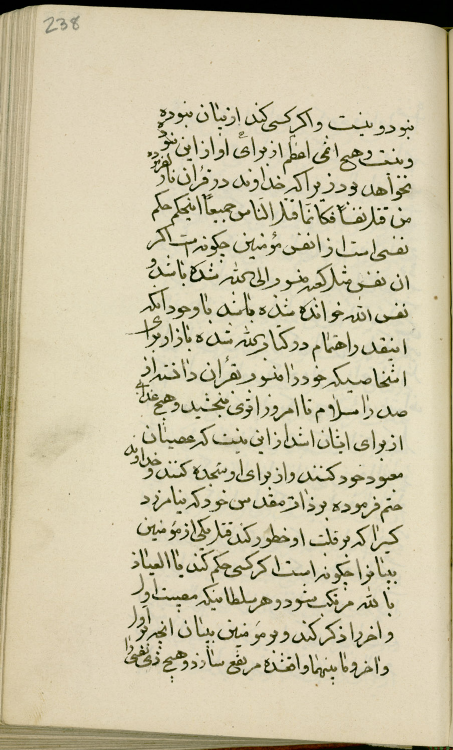 238
نبوده و نیست و اگر کسی کند از بیان نبوده
و نیست و هیچ اثمی اعظم از برای او از این نبوده
نخواهد بود زیرا که خداوند در قران نازل
من قتل نفسا فکانما قتل الناس جمیعا اینحکم
نفسی است از انفس مؤمنین چگونه است اگر
ان نفس مثل کعبه منسوب الی الله شده باشد و
نفس الله خوانده شده باشد با وجود انکه
اینقدر اهتمام در کتاب الله شده باز از برای
اشخاصیکه خود را منسوب بقران دانسته از
صدر اسلام تا امروز اثری نبخشید و هیچ عذابی
از برای ایشان اشد از این نیست که عصیان
معبود خود کنند و از برای او سجده کنند و خداوند
حتم فرموده بر ذات مقدس خود که نیامرزد
کسیرا که بر قلب او خطور کند قتل یکی از مؤمنین
بیانرا چگونه است اگر کسی حکم کند یا العیاذ
بالله مرتکب شود و هر سلطانیکه مصیبت اول
و اخر را ذکر کند و بر مؤمنین ببیان انچه بر اول
و اخر و ما بینهما واقع شده مرتفع سازد و هیچ ذی نفسی را